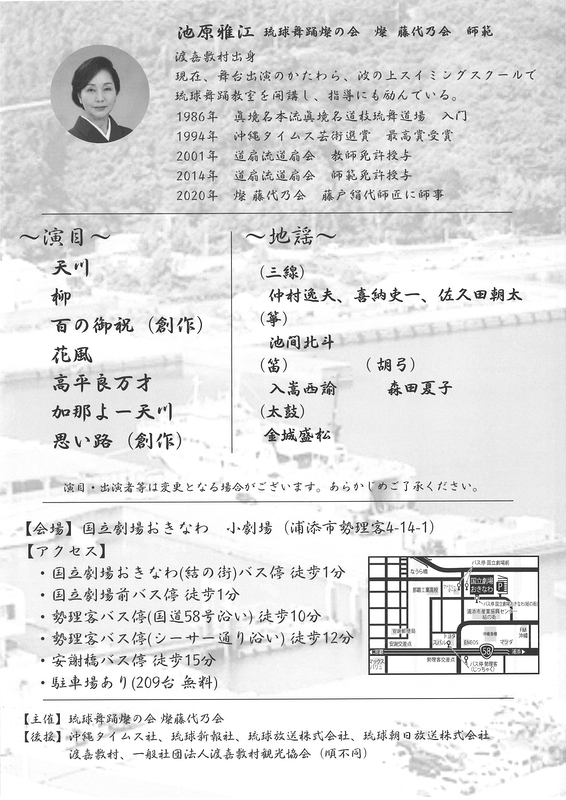 池原雅江 琉球舞踊燦の会 燦 藤代乃会 師範
渡嘉敷村出身
現在、舞台出演のかたわら、波の上スイミングスクールで
琉球舞踊教室を開講し、指導にも励んでいる。
1986年 真境名本流真境名道枝琉舞道場 入門
1994年 沖縄タイムス芸術選賞 最高賞受賞
2001年 道扇流道扇会 教師免許授与
2014年 道扇流道扇会 師範免許授与
2020年 燦 藤代乃会 藤戸絹代師匠に師事
～演目～
天川
柳
百の御祝(創作)
花風
高平良万才
加那よー天川
思い路(創作)
～地謡～
(三線)
仲村逸夫、喜納吏一、佐久田朝太
(箏)
池間北斗
(笛) (胡弓)
入嵩西諭 森田夏子
(太鼓)
金城盛松
演目・出演者等は変更となる場合がございます。あらかじめご了承ください。
【会場】国立劇場おきなわ 小劇場(浦添市勢理客4-14-1)
【アクセス】
・国立劇場おきなわ(結の街)バス停 徒歩1分
・国立劇場前バス停 徒歩1分
・勢理客バス停(国道58号沿い) 徒歩10分
・勢理客バス停(シーサー通り沿い) 徒歩12分
・安謝橋バス停 徒歩15分
・駐車場あり(209台 無料)
バス停 国立劇場前
なうら橋
国立劇場
おきなわ
P
那覇工業高校
バス停 国立劇場おきなわ(結の街)
浦添市産業振興センター
結の街
安謝郵便局
安謝交差点
トヨタ
スバル
ENEOS
マツダ
FM
沖縄
58
勢理客交差点
バス停 勢理客
(じっちゃく)
マックス
バリュ
【主催】琉球舞踊燦の会 燦藤代乃会
【後援】沖縄タイムス社、琉球新報社、琉球放送株式会社、琉球朝日放送株式会社
渡嘉敷村、一般社団法人渡嘉敷村観光協会(順不同)